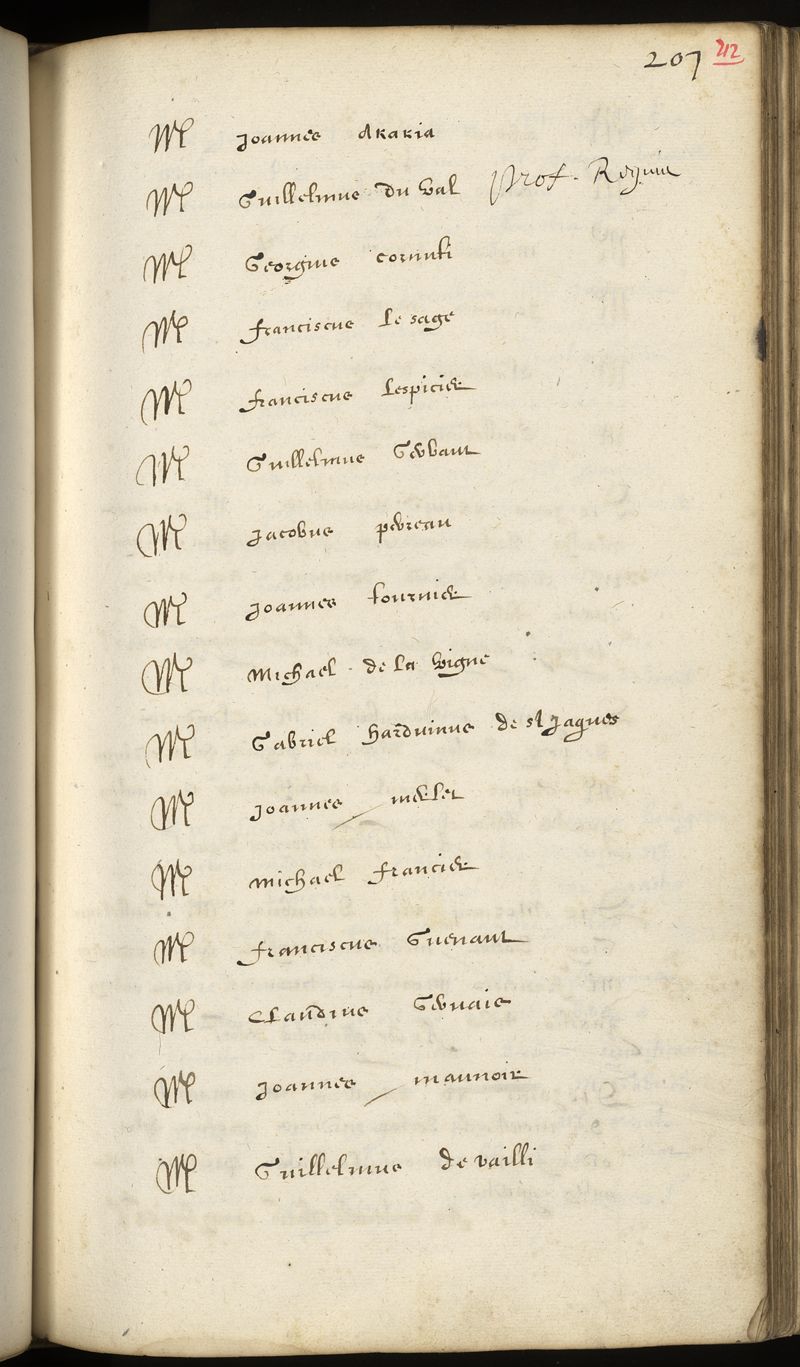 207 212
Mr Joannes Akakia
Mr Guillelmus du Val Prof. Regius
Mr Georgius cornuti
Mr franciscus le sage
Mr franciscus Lespicier
Mr Guillelmus Gerbaut
Mr Jacobus perreau
Mr Joannes tournier
Mr Michael de la Vigne
Mr Gabriel Harduinus de st Jaques
Mr Joannes merlet
Mr Michael francier
Mr franciscus Guenaut
Mr Claudius Gervais
Mr Joannes maunoir
Mr Guillelmus de vailli